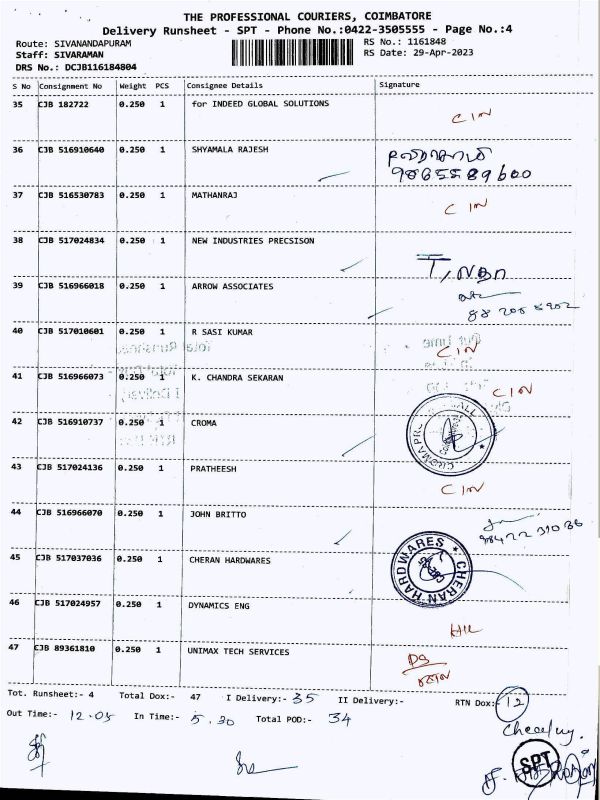 THE PROFESSIONAL COURIERS, COIMBATORE
Delivery Runsheet - SPT - Phone No.:0422-3505555 - Page No.:4
Route: SIVANANDAPURAM RS No.: 1161848
Staff: SIVARAMAN RS Date: 29-Apr-2023
DRS No.: DCJB116184804
S No Consignment No Weight PCS Consignee Details Signature
35 CJB 182722 0.250 1 for INDEED GLOBAL SOLUTIONS
CIN
36 CJB 516910640 0.250 1 SHYAMALA RAJESH
9865589600
37 CJB 516530783 0.250 1 MATHANRAJ
CIN
38 CJB 517024834 0.250 1 NEW INDUSTRIES PRECSISON
39 CJB 516966018 0.250 1 ARROW ASSOCIATES
40 CJB 517010601 0.250 1 R SASI KUMAR
CIN
41 CJB 516966073 0.250 1 K. CHANDRA SEKARAN
CIN
42 CJB 516910737 0.250 1 CROMA
43 CJB 517024136 0.250 1 PRATHEESH
CIN
44 CJB 516966070 0.250 1 JOHN BRITTO
45 CJB 517037036 0.250 1 CHERAN HARDWARES
CHERAN HARDWARES
46 CJB 517024957 0.250 1 DYNAMICS ENG
47 CJB 89361810 0.250 1 UNIMAX TECH SERVICES
Tot. Runsheet:- 4 Total Dox:- 47 I Delivery:- 35 II Delivery:- RTN Dox:- 12
Out Time:- 12.05 In Time:- 5.30 Total POD:- 34
SPT